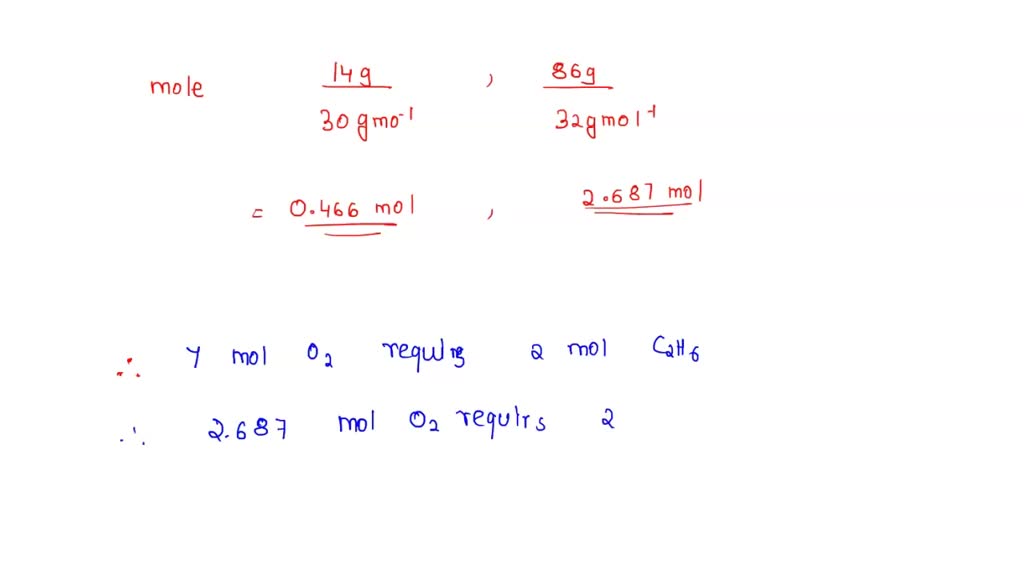 mole 14g , 86g
30 gmo⁻¹ 32gmol⁻¹
= 0.466 mol , 2.687 mol
∴ 7 mol O₂ requirs 2 mol C₂H₆
∴ 2.687 mol O₂ requirs 2